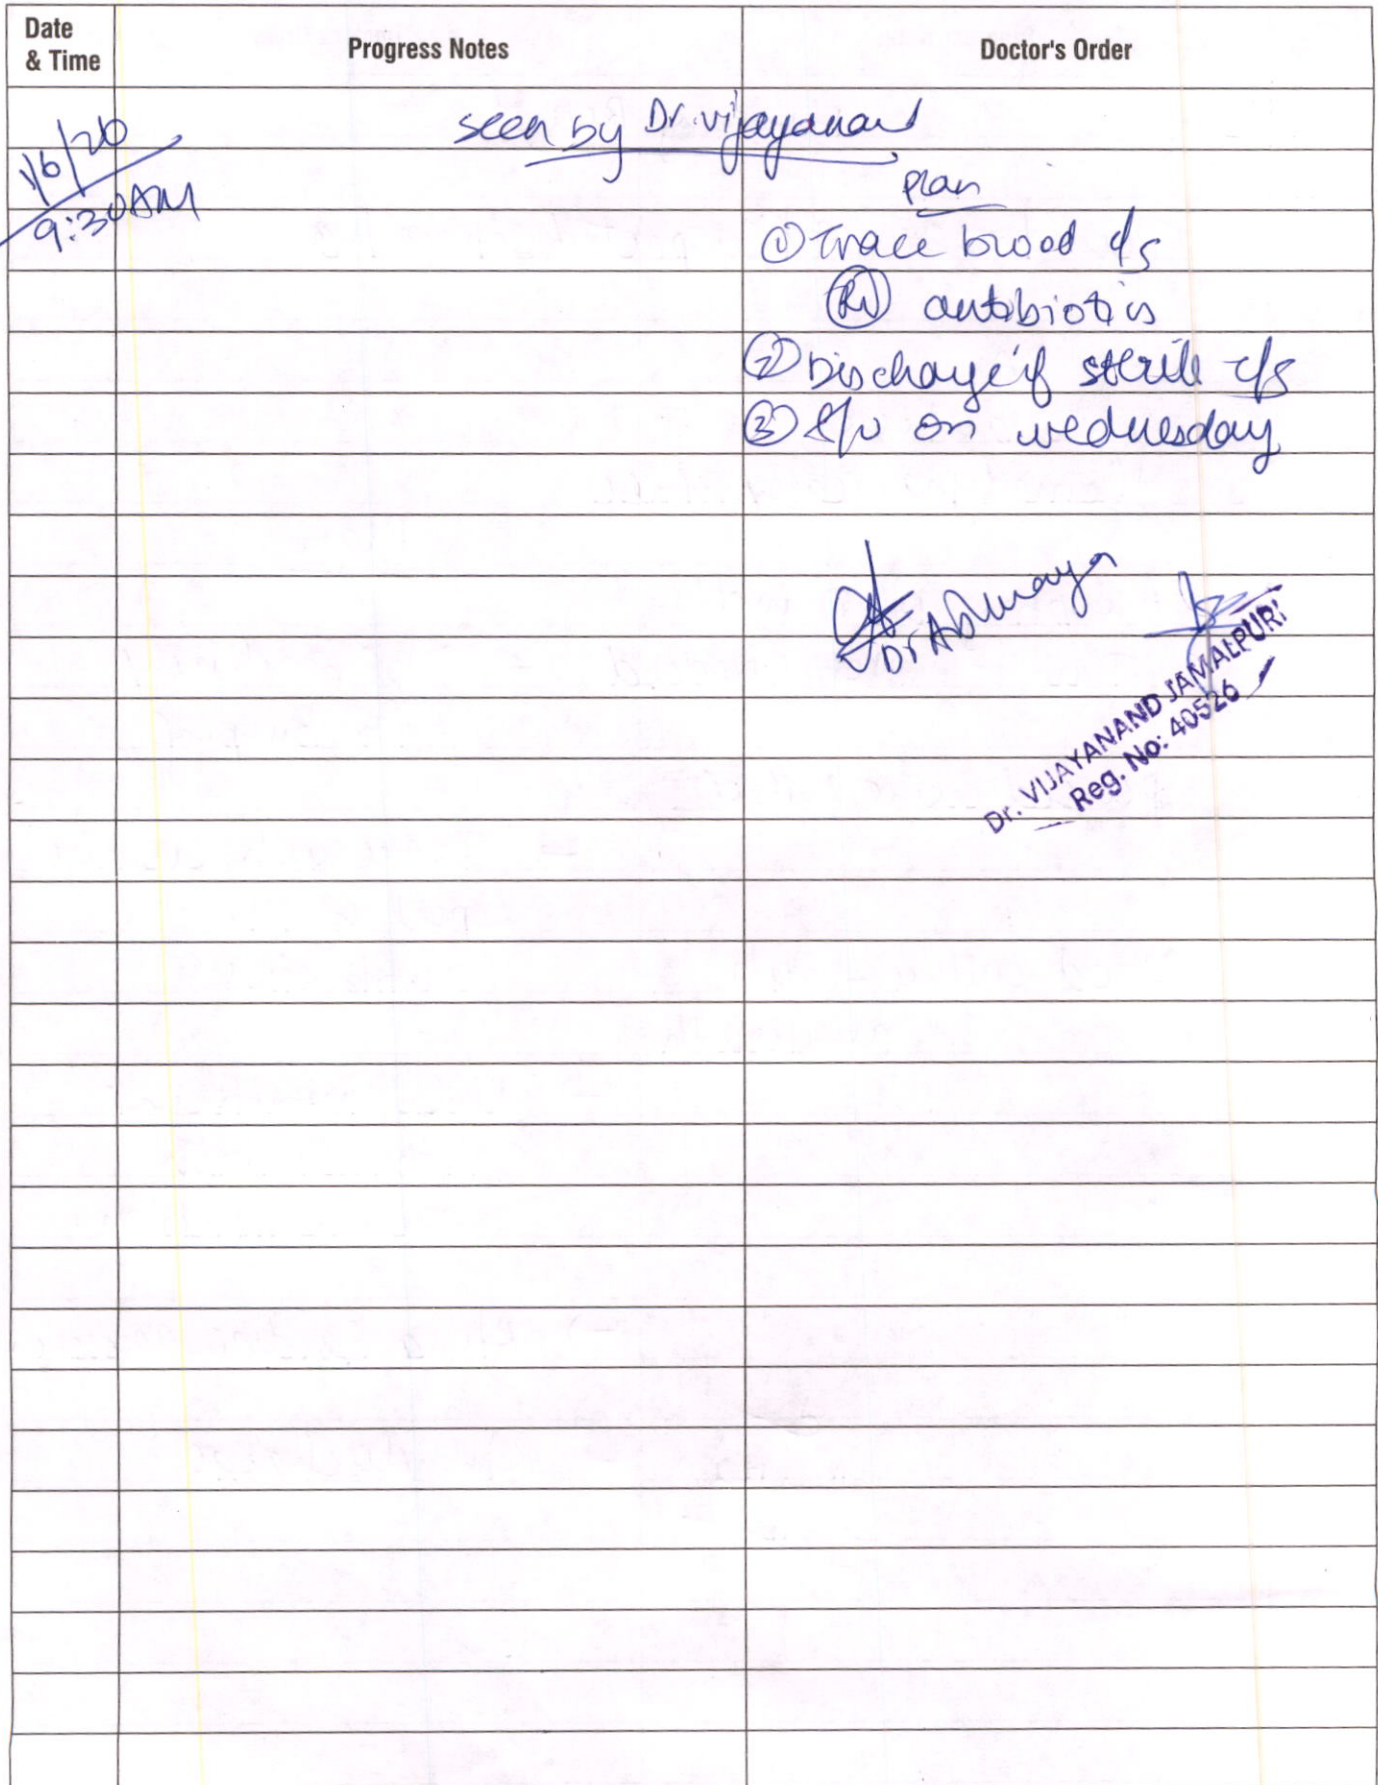 Date
& Time
Progress Notes
Doctor's Order
1/6/20
9:30AM
seen by Dr. Vijayanand
Plan
① Trace blood c/s
antibiotics
② Discharge if sterile c/s
③ on wednesday
Dr
Dr. VIJAYANAND JAMALPURI
Reg. No: 40526